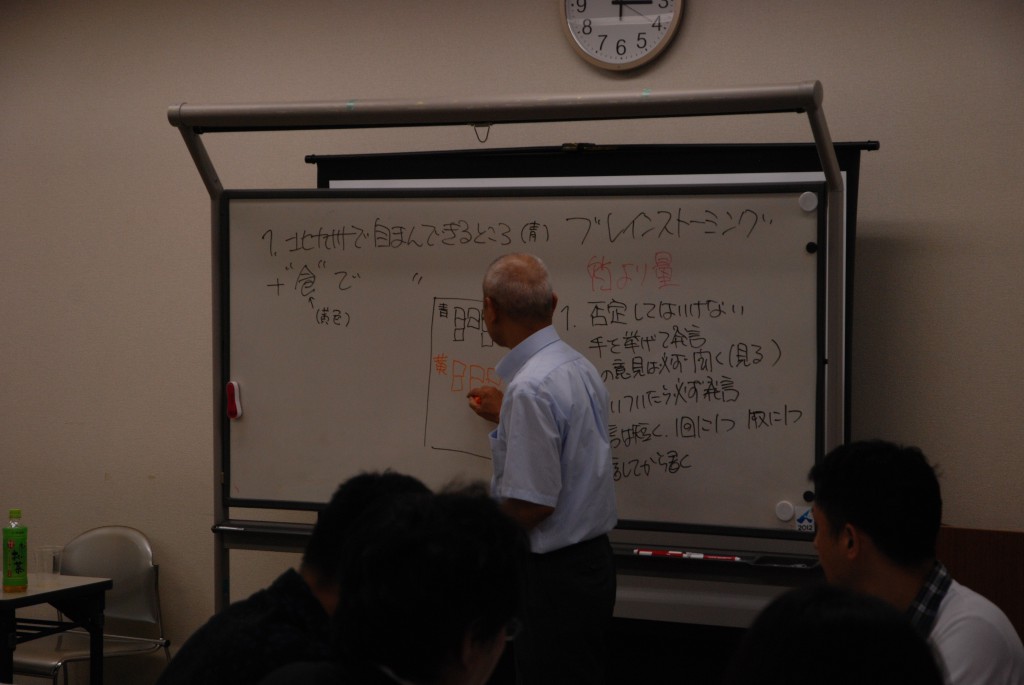 9 3
8 4
7 6 5
1. 北九州で自まんできるところ(青)
+"食"で 〃
(黄色)
青
黄
ブレインストーミング
質より量
1. 否定してはいけない
手を挙げて発言
の意見は必ず聞く(見る)
いついたら必ず発言
言は短く、1回に1つ 1枚に1つ
してから書く
2012